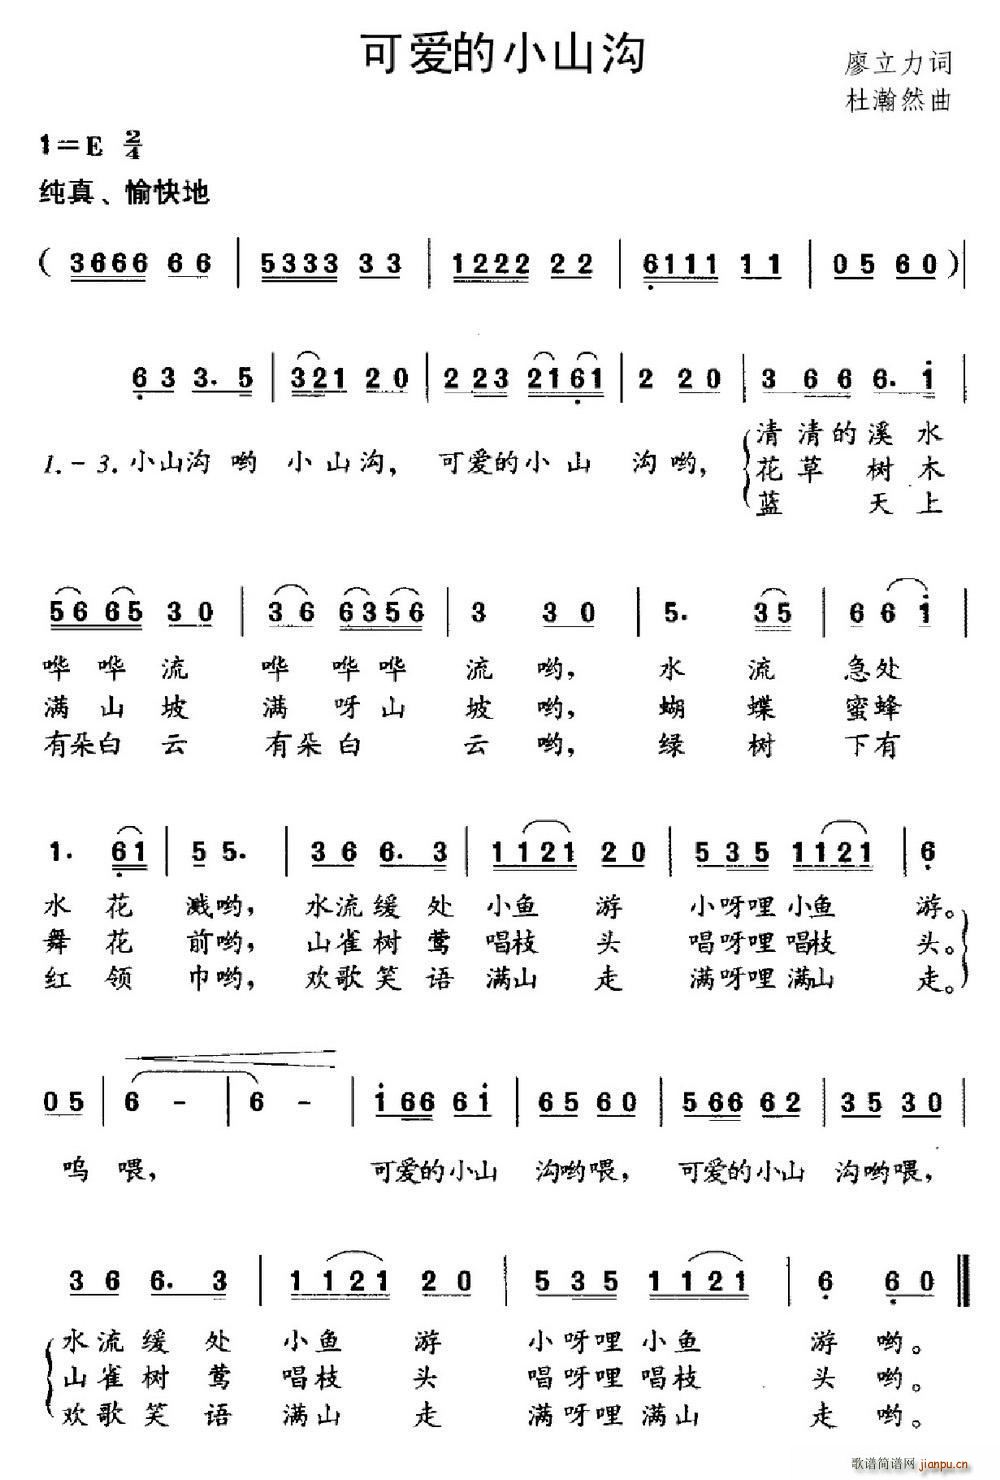 可爱的小山沟
廖立力词
杜瀚然曲
1=E 2/4
纯真、愉快地
( 3666 66 | 5333 33 | 1222 22 | 6111 11 | 05 60 ) |
63 3. 5 | 321 20 | 223 2161 | 2 20 | 366 6. 1 |
1.-3. 小山沟 哟 小山沟, 可爱的小山 沟哟, 清清的溪水
花草 树木
蓝 天上
56 65 30 | 36 6356 | 3 30 | 5. 35 | 66 1 |
哗哗流 哗哗哗 流哟, 水流 急处
满山坡 满呀山 坡哟, 蝴蝶 蜜蜂
有朵白云 有朵白 云哟, 绿树 下有
1. 61 | 5 5. | 36 6. 3 | 1121 20 | 535 1121 | 6
水花 溅哟, 水流缓处 小鱼游 小呀哩小鱼 游。
舞花 前哟, 山雀树莺 唱枝头 唱呀哩唱枝 头。
红领 巾哟, 欢歌笑语 满山走 满呀哩满山 走。
05 | 6 - | 6 - | 166 61 | 65 60 | 566 62 | 35 30 |
呜 喂, 可爱的小山 沟哟喂, 可爱的小山 沟哟喂,
36 6. 3 | 1121 20 | 535 1121 | 6 60 ‖
水流缓处 小鱼游 小呀哩小鱼 游哟。
山雀树莺 唱枝头 唱呀哩唱枝 头哟。
欢歌笑语 满山走 满呀哩满山 走哟。
歌谱简谱网 jianpu.cn